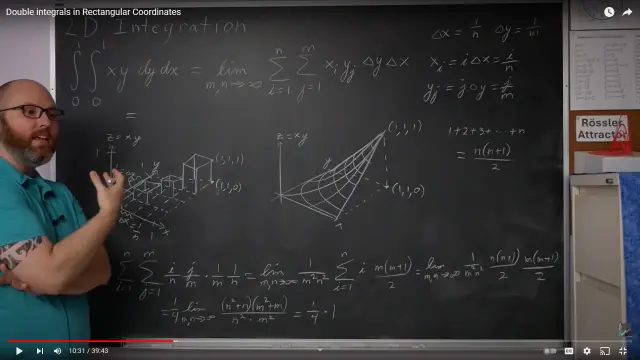 Double integrals in Rectangular Coordinates
2D Integration
∫₀¹ ∫₀¹ xy dy dx = lim_{m,n→∞} Σ_{i=1}^{n} Σ_{j=1}^{m} x_i y_j Δy Δx
Δx = 1/n Δy = 1/m
x_i = iΔx = i/n
y_j = jΔy = j/m
=
z = xy
1
(1,1,1)
(1,1,0)
z = xy
(1,1,1)
(1,1,0)
1+2+3+...+n
= n(n+1)/2
Rössler
Attractor
Σ_{i=1}^{n} Σ_{j=1}^{m} i/n j/m · 1/m 1/n = lim_{m,n→∞} 1/(m²n²) Σ_{i=1}^{n} i m(m+1)/2 = lim_{m,n→∞} 1/(m²n²) n(n+1)/2 m(m+1)/2
= 1/4 lim_{m,n→∞} (n²+n)(m²+m)/(n²·m²) = 1/4 · 1
10:31 / 39:43